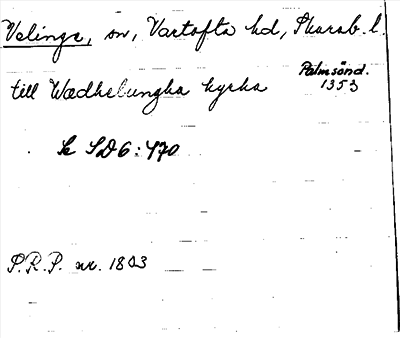 Valinge, sn, Vartofta hd, Skarab. l.
Palmsönd.
1353
till Wædhelungha kyrka
Se SD 6:470
S.R.P. nr. 1803